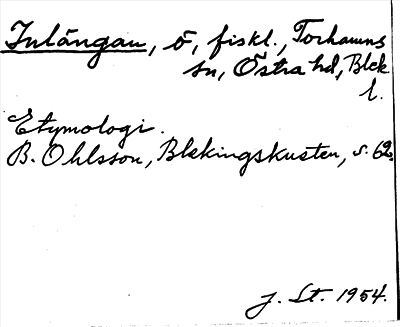 Inlängan, ö, fiskl., Torhamns
sn, Östra hd, Blek
l.
Etymologi.
B. Ohlsson, Blekingskusten, s. 62.
J. St. 1954.